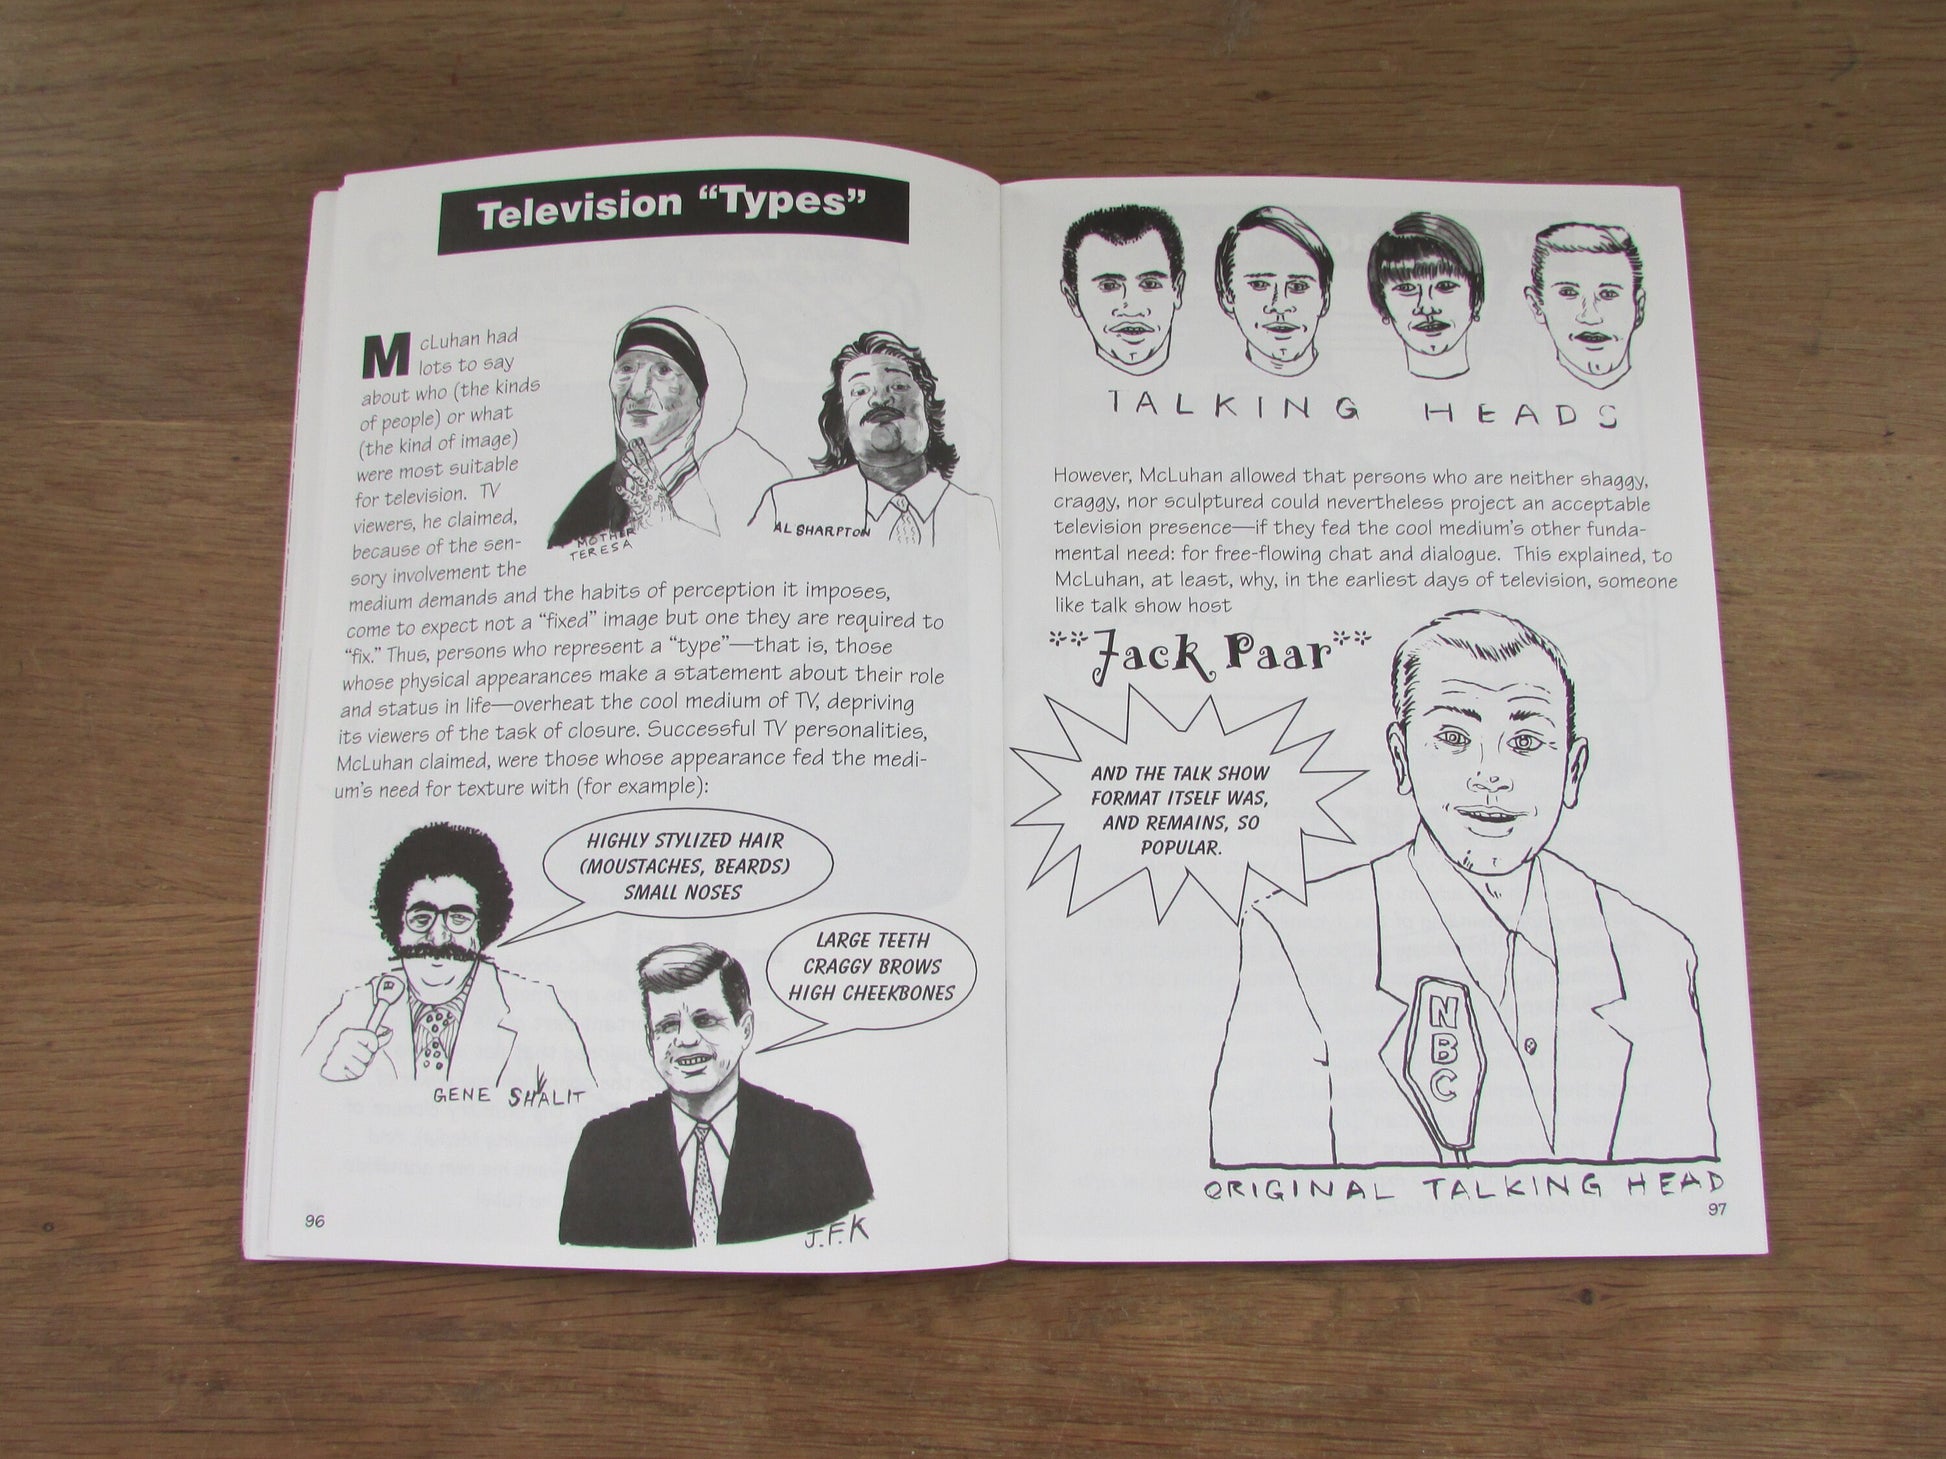 Television “Types”
McLuhan had
lots to say
about who (the kinds
of people) or what
(the kind of image)
were most suitable
for television. TV
viewers, he claimed,
because of the sen-
sory involvement the
medium demands and the habits of perception it imposes,
come to expect not a “fixed” image but one they are required to
“fix.” Thus, persons who represent a “type”—that is, those
whose physical appearances make a statement about their role
and status in life—overheat the cool medium of TV, depriving
its viewers of the task of closure. Successful TV personalities,
McLuhan claimed, were those whose appearance fed the medi-
um’s need for texture with (for example):
MOTHER
TERESA
AL SHARPTON
HIGHLY STYLIZED HAIR
(MOUSTACHES, BEARDS)
SMALL NOSES
LARGE TEETH
CRAGGY BROWS
HIGH CHEEKBONES
GENE SHALIT
J.F.K
96
TALKING HEADS
However, McLuhan allowed that persons who are neither shaggy,
craggy, nor sculptured could nevertheless project an acceptable
television presence—if they fed the cool medium’s other funda-
mental need: for free-flowing chat and dialogue. This explained, to
McLuhan, at least, why, in the earliest days of television, someone
like talk show host
**Jack Paar**
AND THE TALK SHOW
FORMAT ITSELF WAS,
AND REMAINS, SO
POPULAR.
NBC
ORIGINAL TALKING HEAD
97